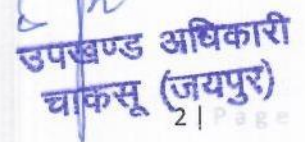 उपखण्ड अधिकारी
चाकसू (जयपुर)
2 | Page